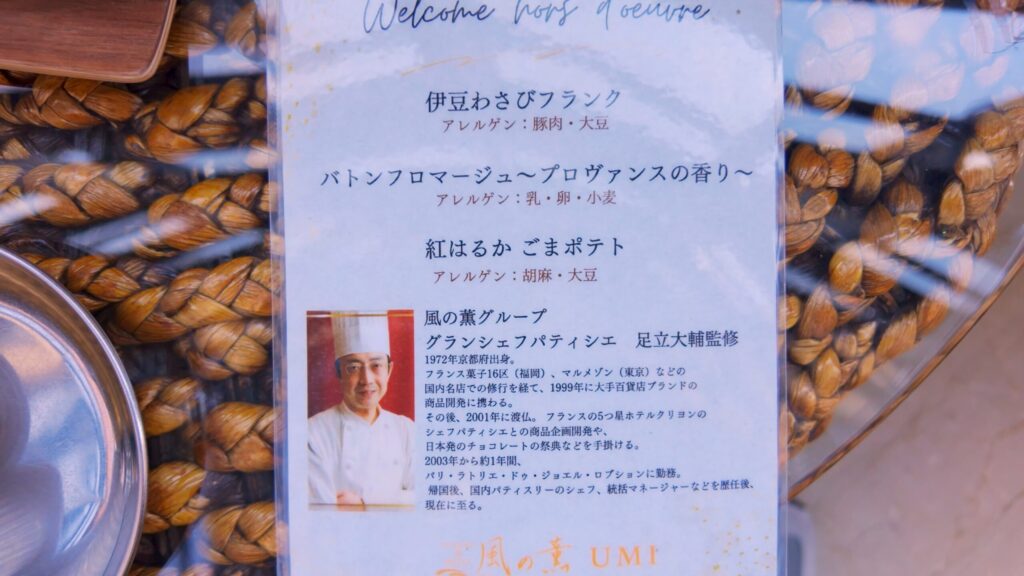 Welcome hors d'oeuvre
伊豆わさびフランク
アレルゲン：豚肉・大豆
バトンフロマージュ～プロヴァンスの香り～
アレルゲン：乳・卵・小麦
紅はるか ごまポテト
アレルゲン：胡麻・大豆
風の薫グループ
グランシェフパティシエ　足立大輔監修
1972年京都府出身。
フランス菓子16区（福岡）、マルメゾン（東京）などの
国内名店での修行を経て、1999年に大手百貨店ブランドの
商品開発に携わる。
その後、2001年に渡仏。 フランスの5つ星ホテルクリヨンの
シェフパティシエとの商品企画開発や、
日本発のチョコレートの祭典などを手掛ける。
2003年から約1年間、
パリ・ラトリエ・ドゥ・ジョエル・ロブションに勤務。
帰国後、国内パティスリーのシェフ、統括マネージャーなどを歴任後、
現在に至る。
風の薫 UMI